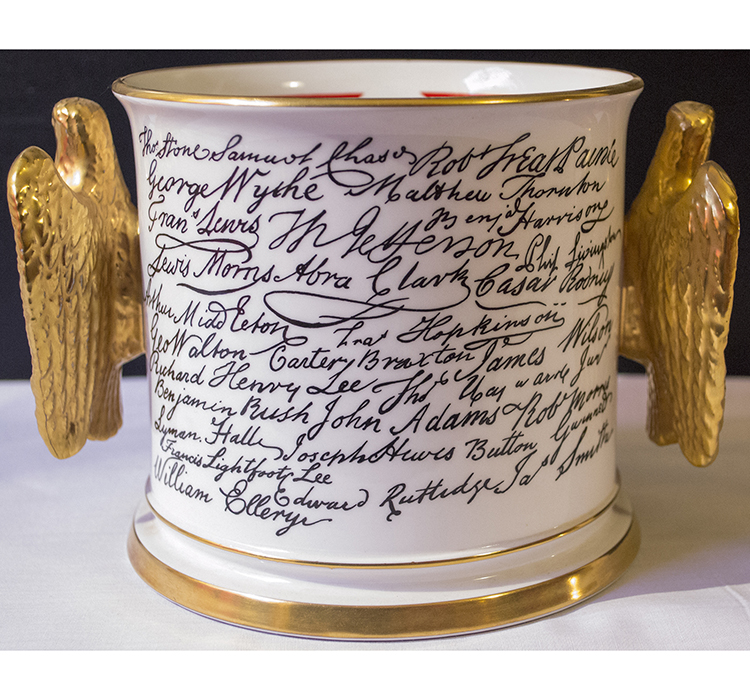 Thos Stone Samuel Chase Robt Treat Paine
George Wythe Matthew Thornton
Frans Lewis Th Jefferson Benja Harrison
Lewis Morris Abra Clark Phil Livingston
Casar Rodney
Arthur Middleton Fras Hopkinson
Geo Walton Carter Braxton James Wilson
Richard Henry Lee Thos Hayward Jun
Benjamin Rush John Adams Robt Morris
Lyman Hall Joseph Hewis Button Gwinnett
Francis Lightfoot Lee
William Ellery Edward Rutledge Jas Smith